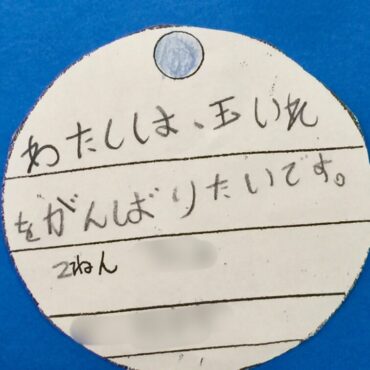 わたしは、玉いれ
をがんばりたいです。
2ねん